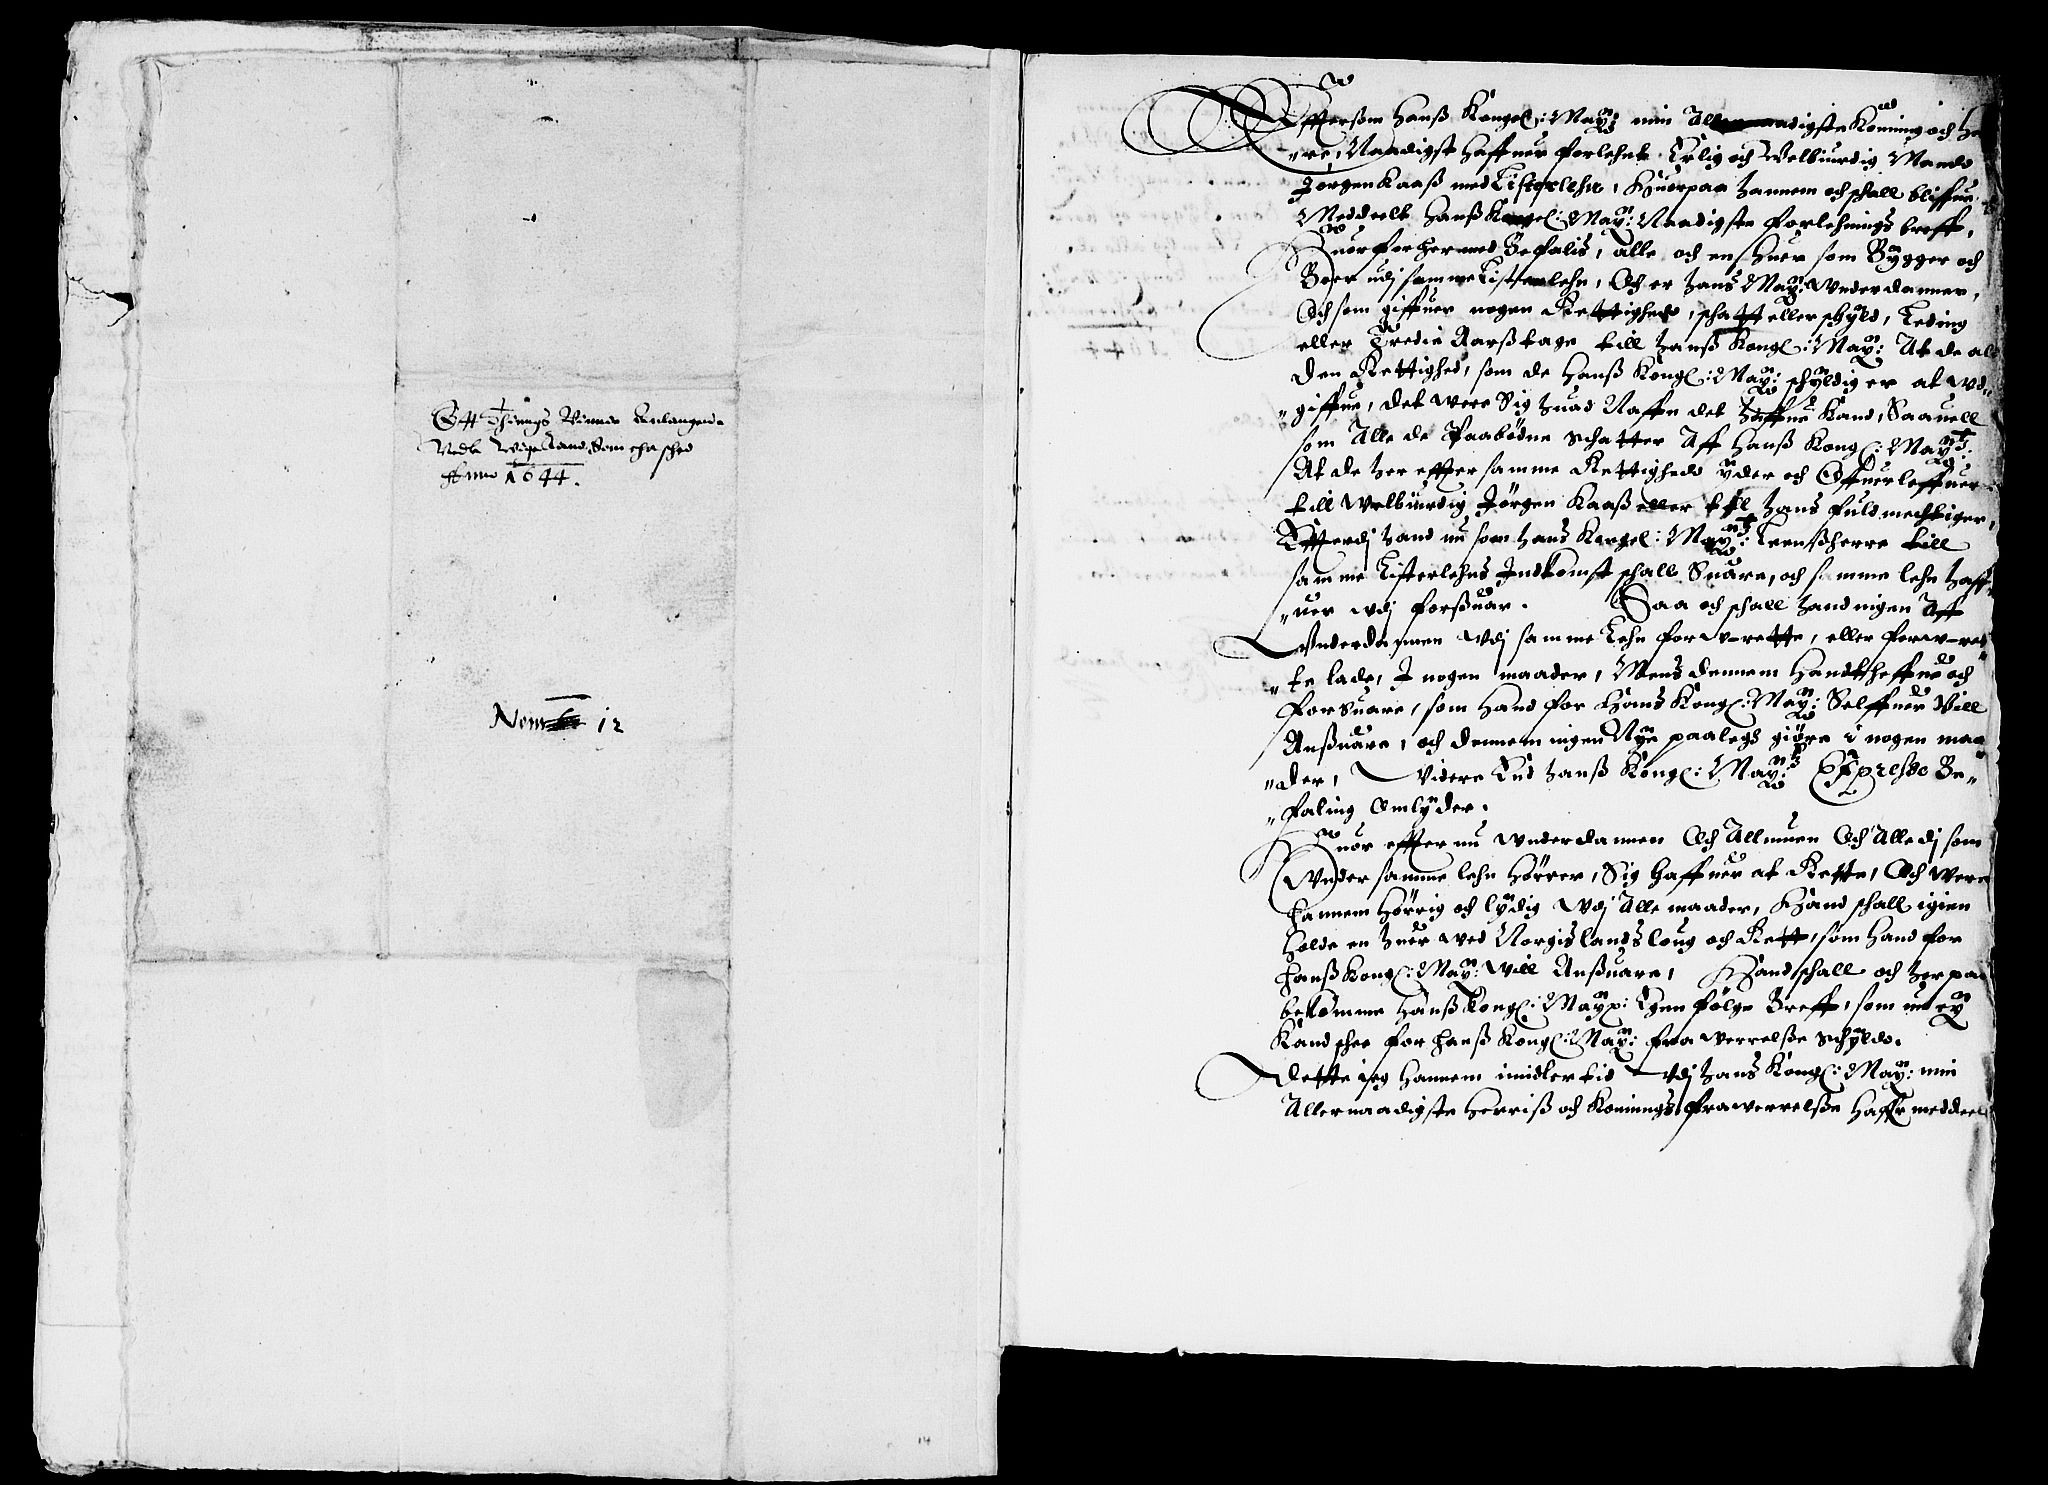 Ett Tings Vinde Anlangende
Vedt Land Som er sched
Anno 1644.
Nom 12
14
Effterssom Hanß Kongl: May: min Allernaadigste Koning och Her
"re, Naadigst haffuer forlehnt Erlig och Welbiurdig Mand
Jørgen Kaaß med Listerlehn, Huorpaa hannem och schall bliffue
Meddeelt Hanß Kongel: May: Naadigste forlehnings breff,
Huorfor hermed Befalis, alle och en huer som Bygger och
Boer udj samme Listerlehn, Och er hans May: Wnderdanner,
Och som giffuer nogen Rettighed, schatt eller schyld, Leding
eller Tredie Aarßtage till hanß Kongl: May: At de al
den Rettighed, som de Hanß Kongl: May: schyldig er at wd-
"giffue, det were Sig huad Naffn det haffue Kand, Saauell
som Alle de Paabødne schatter Aff Hanß Kongl: Maytz:
At de her effter samme Rettighed yder och Offuerleffuer
till welbiurdig Jørgen Kaaß eller till hans fuldmechtiger,
Efterdj hand nu som hans Kongel: Maytz: Leensherre till
samme Listerlehns Indkomst schall Suare, och samme lehn haff-
"uer wdj forßuar. Saa och schall hand ingen Aff
Wnderdannen wdj samme Lehn forw-rette, eller forw-ret
"te lade, J nogen maader, Mens dennem Handtheffue och
forsuare, som Hand for Hans Kongl: May: Selffuer Vill
Anßuare, och dennem ingen Nye paalegs giøre i nogen maa
"der, Videre End hanß Kongl: Maytz Expresse Be-
"faling Omlyder.
Huor effter nu wnderdannen Och Allmuen Och Alle dj som
Wnder samme lehn Hørrer, Sig haffuer at Rette, Och were
hannem Hørrig och lydig Wdj Alle maader, Hand schall igien
Holde en huer wed Norgis lands loug och Rett, som Hand for
hanß Kongl: May: will Anßuare, Hand schall och herpaa
bekomme Hanß Kongl: May: Egen følge Breff, som nu ey
Kand schee for hanß Kongl: May: frawerrelße schyld.
Dette jeg Hannem imidlertid Wdj hans Kongl: May: min
Allernaadigste Herriß och Konings frawerrelße Haffr meddeel